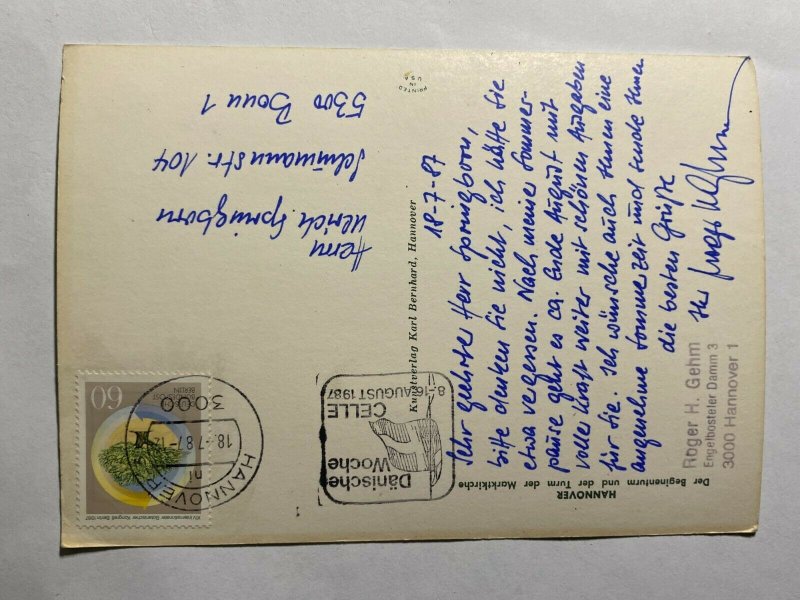 HANNOVER
Der Beginenturm und der Turm der Marktkirche
Roger H. Gehm
Engelbosteler Damm 3
3000 Hannover 1
18-7-87
Sehr geehrter Herr Springborn,
bitte denken Sie nicht, ich hätte Sie
etwa vergessen. Nach meiner Sommer-
pause geht es ca. Ende August mit
voller Kraft weiter mit schönen Ausgaben
für Sie. Ich wünsche auch Ihnen eine
angenehme Sommerzeit und sende Ihnen
die besten Grüße
Ihr
Kunstverlag Karl Bernhard, Hannover
PRINTED
IN
U S A
Dänische
Woche
CELLE
8.-16. AUGUST 1987
HANNOVER
18.-7.87-12
3000
60
DEUTSCHE
BUNDESPOST
BERLIN
XIV Internationaler Botanischer Kongreß Berlin 1987
Herrn
Ulrich Springborn
Schumannstr. 104
5300 Bonn 1